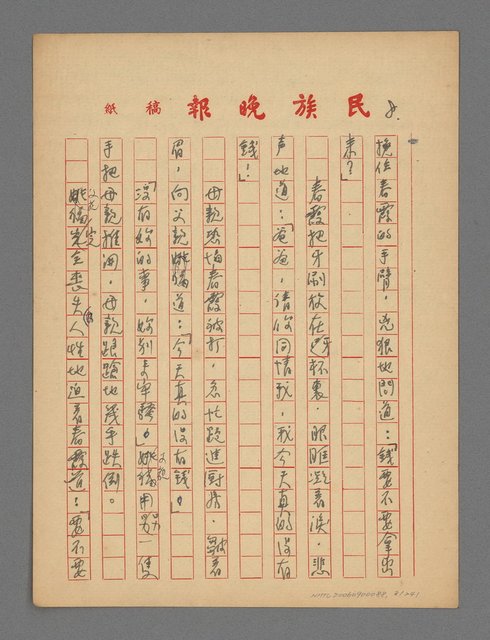 民族晚報 稿紙
8.
挽住春霞的手臂，兇狠地問道：「錢要不要拿出
來？」
春霞把牙刷放在牙杯裏，眼眶凝着淚，悲
声地道：「爸爸，請你同情我，我今天真的沒有
錢！」
母親恐怕春霞被打，急忙跑進厨房，皺着
眉，向父親道：「今天真的沒有錢。」
「沒有妳的事，妳别去牢騷。」父親用另一隻
手把母親推開，母親踉蹌地幾乎跌倒。
父亲完全喪失人性地迫着春霞道：「要不要
NMTL20060900088, 8/241